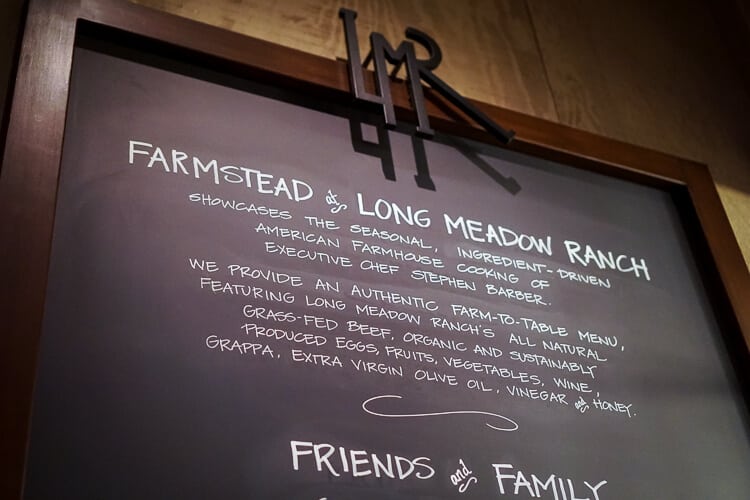 LMR
FARMSTEAD at LONG MEADOW RANCH
SHOWCASES THE SEASONAL, INGREDIENT-DRIVEN
AMERICAN FARMHOUSE COOKING OF
EXECUTIVE CHEF STEPHEN BARBER.
WE PROVIDE AN AUTHENTIC FARM-TO-TABLE MENU,
FEATURING LONG MEADOW RANCH'S ALL NATURAL
GRASS-FED BEEF, ORGANIC AND SUSTAINABLY
PRODUCED EGGS, FRUITS, VEGETABLES, WINE,
GRAPPA, EXTRA VIRGIN OLIVE OIL, VINEGAR and HONEY.
FRIENDS and FAMILY